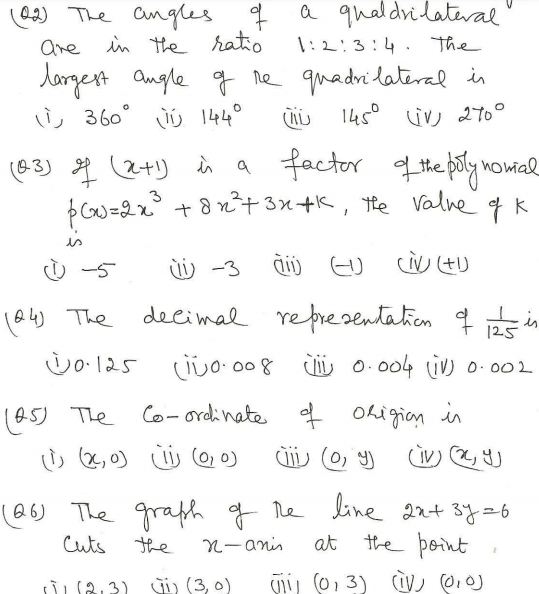 (Q2) The angles of a qualdrilateral
are in the ratio 1:2:3:4. The
largest angle of the quadrilateral is
(i) 360° (ii) 144° (iii) 145° (iv) 270°
(Q3) If (x+1) is a factor of the polynomial
p(x)=2x³ + 8x²+3x+K, the value of K
is
(i) -5 (ii) -3 (iii) (-1) (iv) (+1)
(Q4) The decimal representation of 1/125 is
(i) 0.125 (ii) 0.008 (iii) 0.004 (iv) 0.002
(Q5) The Co-ordinate of Origion is
(i) (x,0) (ii) (0,0) (iii) (0, y) (iv) (x,y)
(Q6) The graph of the line 2x+3y=6
Cuts the x-axis at the point.
(i) (2,3) (ii) (3,0) (iii) (0,3) (iv) (0,0)